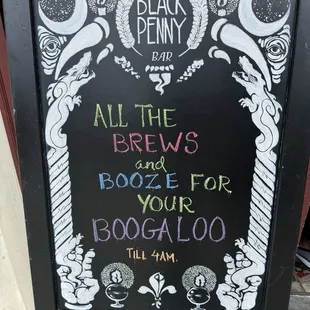 BLACK
PENNY
BAR
ALL THE
BREWS
and
BOOZE FOR
YOUR
BOOGALOO
TILL 4AM.